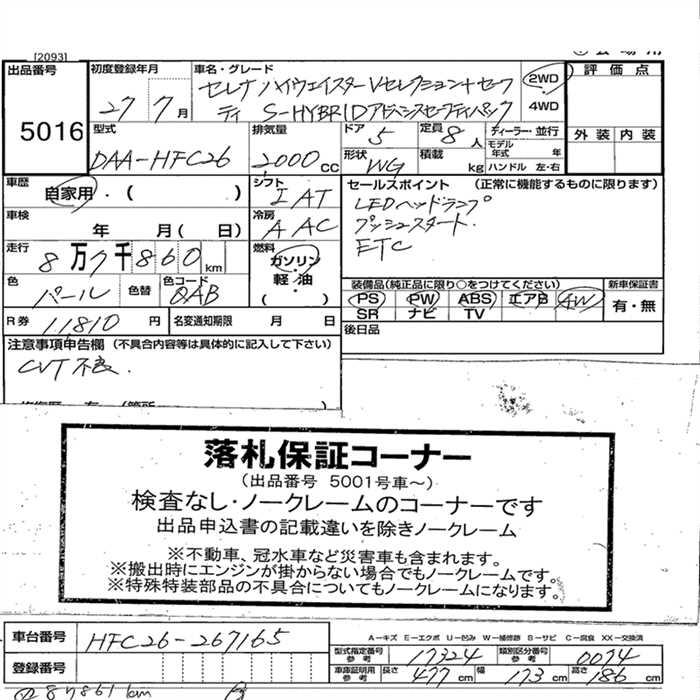 [2093]
出品番号
5016
初度登録年月
27 7月
車名・グレード
セレナ ハイウェイスターVセレクション+セーフ
ティ S-HYBRIDアドバンスセーフティパック
2WD
4WD
評価点
外装 内装
型式
DAA-HFC26
排気量
2000cc
ドア
5
定員
8人
ディーラー・並行
モデル年式 年
形状
WG
積載
kg
ハンドル 左・右
車歴
自家用・( )
シフト
IAT
セールスポイント (正常に機能するものに限ります)
LEDヘッドランプ
プッシュスタート.
ETC
車検
年 月(日)
冷房
AAC
走行
8万7千860km
燃料
ガソリン・
軽・油・
( )
色
パール
色替
色コード
QAB
装備品(純正品に限り○をつけてください)
PS PW ABS エアB AW
SR ナビ TV
新車保証書
有・無
R券 11810円
名変通知期限 月 日
後日品
注意事項申告欄 (不具合内容等は具体的に記入して下さい)
CVT不良.
落札保証コーナー
(出品番号 5001号車~)
検査なし・ノークレームのコーナーです
出品申込書の記載違いを除きノークレーム
※不動車、冠水車など災害車も含まれます。
※搬出時にエンジンが掛からない場合でもノークレームです。
※特殊特装部品の不具合についてもノークレームになります。
車台番号
HFC26-267165
A-キズ E-エクボ U-凹み W-補修跡 S-サビ C-腐食 XX-交換済
登録番号
型式指定番号 参考 17324
類別区分番号 参考 0074
車庫証明用 参考 長さ 477cm 幅 173cm 高さ 186cm
87861km